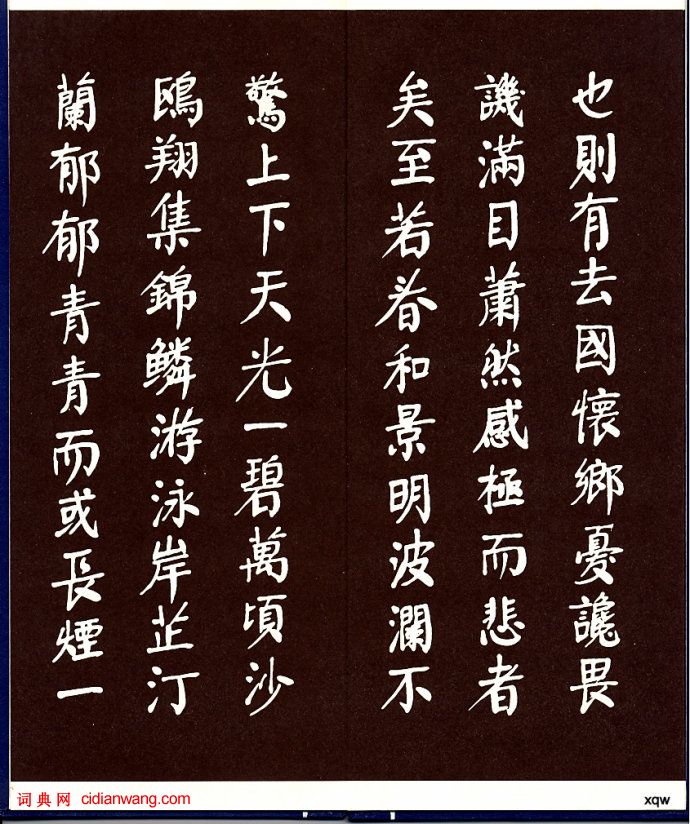 也則有去國懷鄉憂讒畏
譏滿目蕭然感極而悲者
矣至若春和景明波瀾不
驚上下天光一碧萬頃沙
鷗翔集錦鱗游泳岸芷汀
蘭郁郁青青而或長煙一
词典网 cidianwang.com
xqw